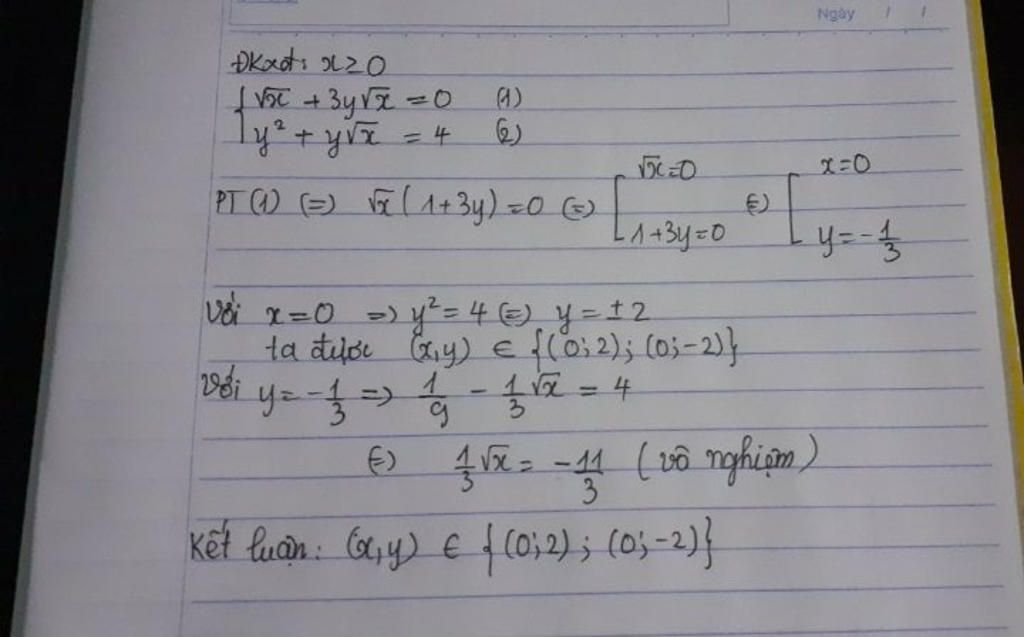 Ngày / /
ĐKxđ: x ≥ 0
{ √x + 3y√x = 0 (1)
y² + y√x = 4 (2)
PT (1) (=) √x ( 1+3y ) = 0 (=) [ √x = 0 (=) [ x = 0
1+3y = 0 y = -1/3
Với x = 0 => y² = 4 (=) y = ±2
ta được (x,y) ∈ {(0;2); (0;-2)}
Với y = -1/3 => 1/9 - 1/3 √x = 4
(=) 1/3 √x = -11/3 ( vô nghiệm )
Kết luận: (x,y) ∈ {(0;2) ; (0;-2)}